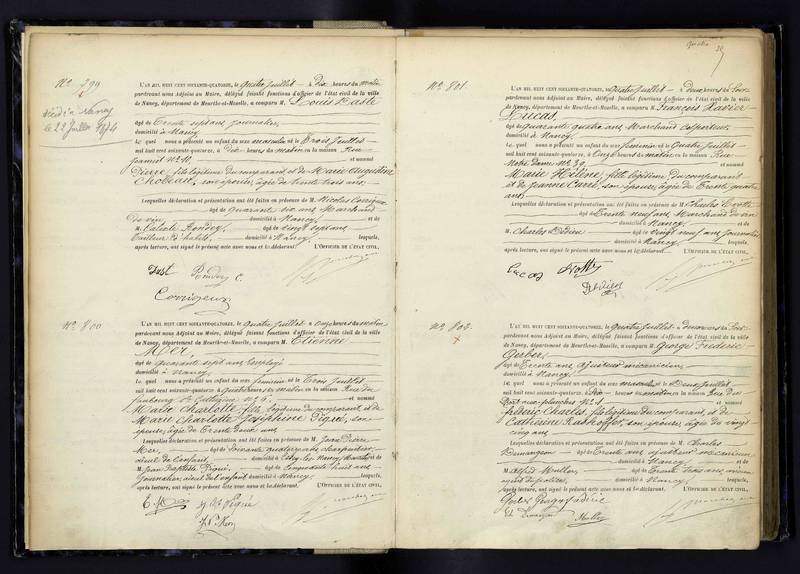 No 799
décédé à Nancy
le 22 Juillet 1874
L'AN MIL HUIT CENT SOIXANTE-QUATORZE, le quatre Juillet à Dix heures du matin
pardevant nous Adjoint au Maire, délégué faisant fonctions d'officier de l'état civil de la ville
de Nancy, département de Meurthe-et-Moselle, a comparu M. Louis
âgé de Trente sept ans, Journalier,
domicilié à Nancy
Le quel nous a présenté un enfant du sexe masculin né le Trois Juillet
mil huit cent soixante-quatorze, à Dix heures du matin en la maison Rue
No 10, et nommé
Pierre, fils légitime du comparant et de Marie Augustine
son épouse, âgée de Trente trois ans.
Lesquelles déclaration et présentation ont été faites en présence de M. Nicolas
âgé de quarante six ans, Marchand
de vin, domicilié à Nancy, et de
M. âgé de vingt sept ans,
Tailleur d'habits, domicilié à Nancy lesquels,
après lecture, ont signé le présent acte avec nous et le déclarant. L'OFFICIER DE L'ÉTAT CIVIL,
No 800
L'AN MIL HUIT CENT SOIXANTE-QUATORZE, le quatre Juillet à Onze heures du matin
pardevant nous Adjoint au Maire, délégué faisant fonctions d'officier de l'état civil de la ville
de Nancy, département de Meurthe-et-Moselle, a comparu M. Etienne
Mer,
âgé de quarante sept ans, Employé
domicilié à Nancy,
Le quel nous a présenté un enfant du sexe féminin né le Trois Juillet
mil huit cent soixante-quatorze, à quatre heures du matin en la maison Rue du
faubourg Ste Catherine No 6, et nommé
Marie Charlotte, fille légitime du comparant et de
Marie Charlotte Joséphine Piqué, son
épouse, âgée de Trente deux ans
Lesquelles déclaration et présentation ont été faites en présence de M. Jean Pierre
Mer, âgé de Soixante quatorze ans, charpentier,
aïeul de l'enfant, domicilié à et de
M. Jean Baptiste Piqué, âgé de Cinquante huit ans
Journalier, aïeul de l'enfant domicilié à Nancy, lesquels,
après lecture, ont signé le présent acte avec nous et le déclarant. L'OFFICIER DE L'ÉTAT CIVIL,
No 801
L'AN MIL HUIT CENT SOIXANTE-QUATORZE, le quatre Juillet à Deux heures du Soir
pardevant nous Adjoint au Maire, délégué faisant fonctions d'officier de l'état civil de la ville
de Nancy, département de Meurthe-et-Moselle, a comparu M. François Xavier
Lucas,
âgé de quarante quatre ans, Marchand colporteur,
domicilié à Nancy,
Le quel nous a présenté un enfant du sexe féminin né le Quatre Juillet
mil huit cent soixante-quatorze, à Onze heures du matin en la maison Rue
Notre Dame No 39, et nommé
Marie Hélène, fille légitime du comparant
et de Jeanne Carré, son épouse, âgée de Trente quatre
ans,
Lesquelles déclaration et présentation ont été faites en présence de M. Charles
âgé de Trente neuf ans, Marchand de vin
domicilié à Nancy, et de
M. Charles âgé de vingt neuf ans, journalier,
domicilié à Nancy, lesquels,
après lecture, ont signé le présent acte avec nous et le déclarant. L'OFFICIER DE L'ÉTAT CIVIL,
Lucas
No 802
L'AN MIL HUIT CENT SOIXANTE-QUATORZE, le quatre Juillet à Deux heures du Soir
pardevant nous Adjoint au Maire, délégué faisant fonctions d'officier de l'état civil de la ville
de Nancy, département de Meurthe-et-Moselle, a comparu M. George Frédéric
Gerber,
âgé de Trente ans, ajusteur mécanicien,
domicilié à Nancy,
Le quel nous a présenté un enfant du sexe masculin né le Deux Juillet
mil huit cent soixante-quatorze, à Dix heures du matin en la maison Rue du
Port-aux-planches No 1 et nommé
Frédéric Charles, fils légitime du comparant, et de
Catherine son épouse, âgée de vingt
cinq ans
Lesquelles déclaration et présentation ont été faites en présence de M. Charles
Demangeon âgé de Trente ans, ajusteur mécanicien,
domicilié à Nancy et de
M. Alfred Muller, âgé de Trente trois ans,
domicilié à Nancy, lesquels,
après lecture, ont signé le présent acte avec nous et le déclarant. L'OFFICIER DE L'ÉTAT CIVIL,